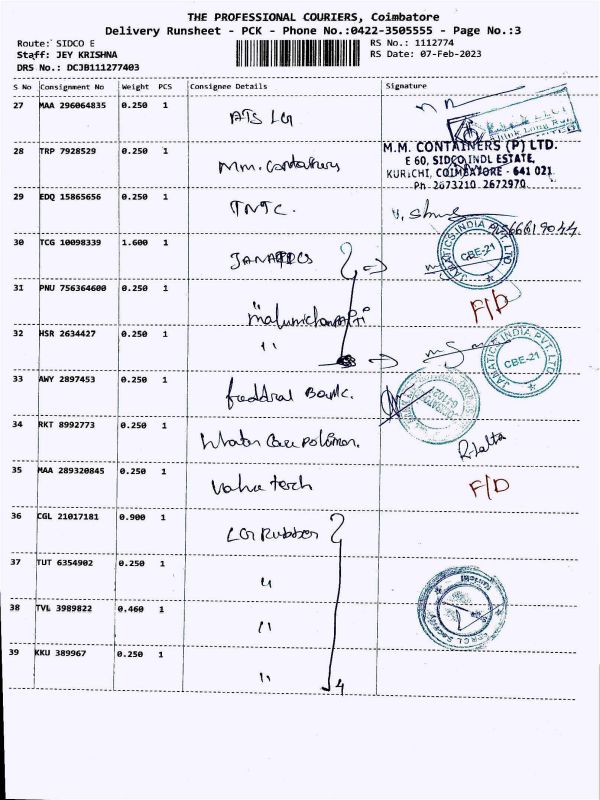 THE PROFESSIONAL COURIERS, Coimbatore
Delivery Runsheet - PCK - Phone No.:0422-3505555 - Page No.:3
Route: SIDCO E
RS No.: 1112774
Staff: JEY KRISHNA
RS Date: 07-Feb-2023
DRS No.: DCJB111277403
S No Consignment No Weight PCS Consignee Details Signature
27 MAA 296064835 0.250 1 ATS LG
28 TRP 7928529 0.250 1 Mm. Containers
M.M. CONTAINERS (P) LTD.
E 60, SIDCO INDL ESTATE,
KURICHI, COIMBATORE - 641 021
Ph 2673210 2672970
29 EDQ 15865656 0.250 1 TNTC.
9566619044
30 TCG 10098339 1.600 1
JANATICS INDIA PVT. LTD. CBE-21
31 PNU 756364600 0.250 1 F/D
32 HSR 2634427 0.250 1 "
JANATICS INDIA PVT. LTD. CBE-21
33 AWY 2897453 0.250 1 Bank.
34 RKT 8992773 0.250 1 Water Care
35 MAA 289320845 0.250 1 tech F/D
36 CGL 21017181 0.900 1 LG Rubber
37 TUT 6354902 0.250 1 "
38 TVL 3989822 0.460 1 "
39 KKU 389967 0.250 1 "
4